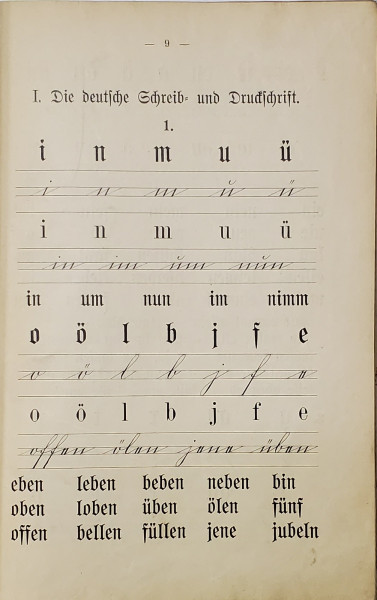 — 9 —
I. Die deutsche Schreib- und Druckschrift.
1.
i n m u ü
i n m u ü
i n m u ü
in im um nun
in um nun im nimm
o ö l b j f e
o ö l b j f e
o ö l b j f e
offen ölen jene üben
eben leben beben neben bin
oben loben üben ölen fünf
offen bellen füllen jene jubeln